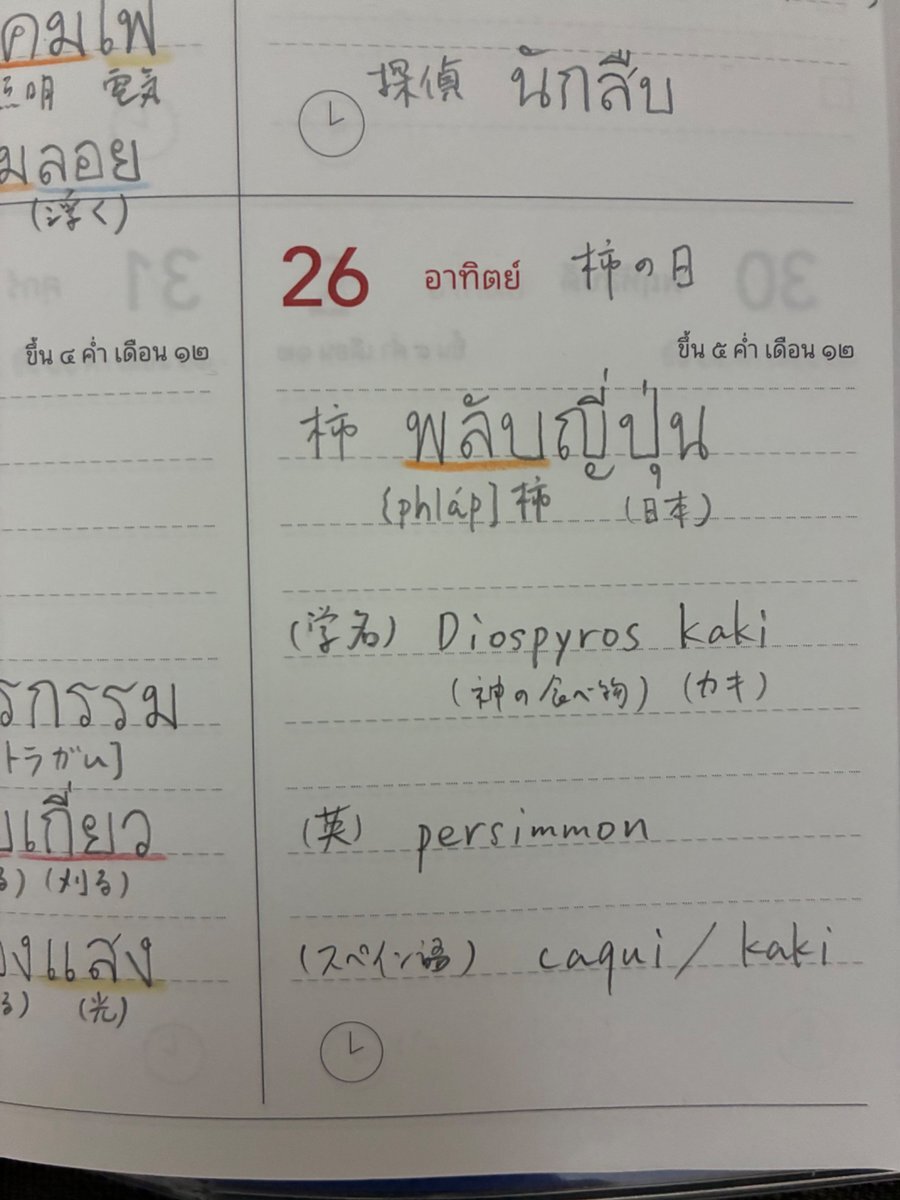 คมไฟ
照明 電気
มลอย
(浮く)
ขึ้น ๔ ค่ำ เดือน ๑๒
รกรรม
トラがい]
เกี่ยว
る) (刈る)
องแสง
る) (光)
探偵 นักสืบ
26 อาทิตย์ 柿の日
ขึ้น ๕ ค่ำ เดือน ๑๒
柿 พลับญี่ปุ่น
[phláp] 柿 (日本)
(学名) Diospyros kaki
(神の食べ物) (カキ)
(英) persimmon
(スペイン語) caqui / kaki
31
30